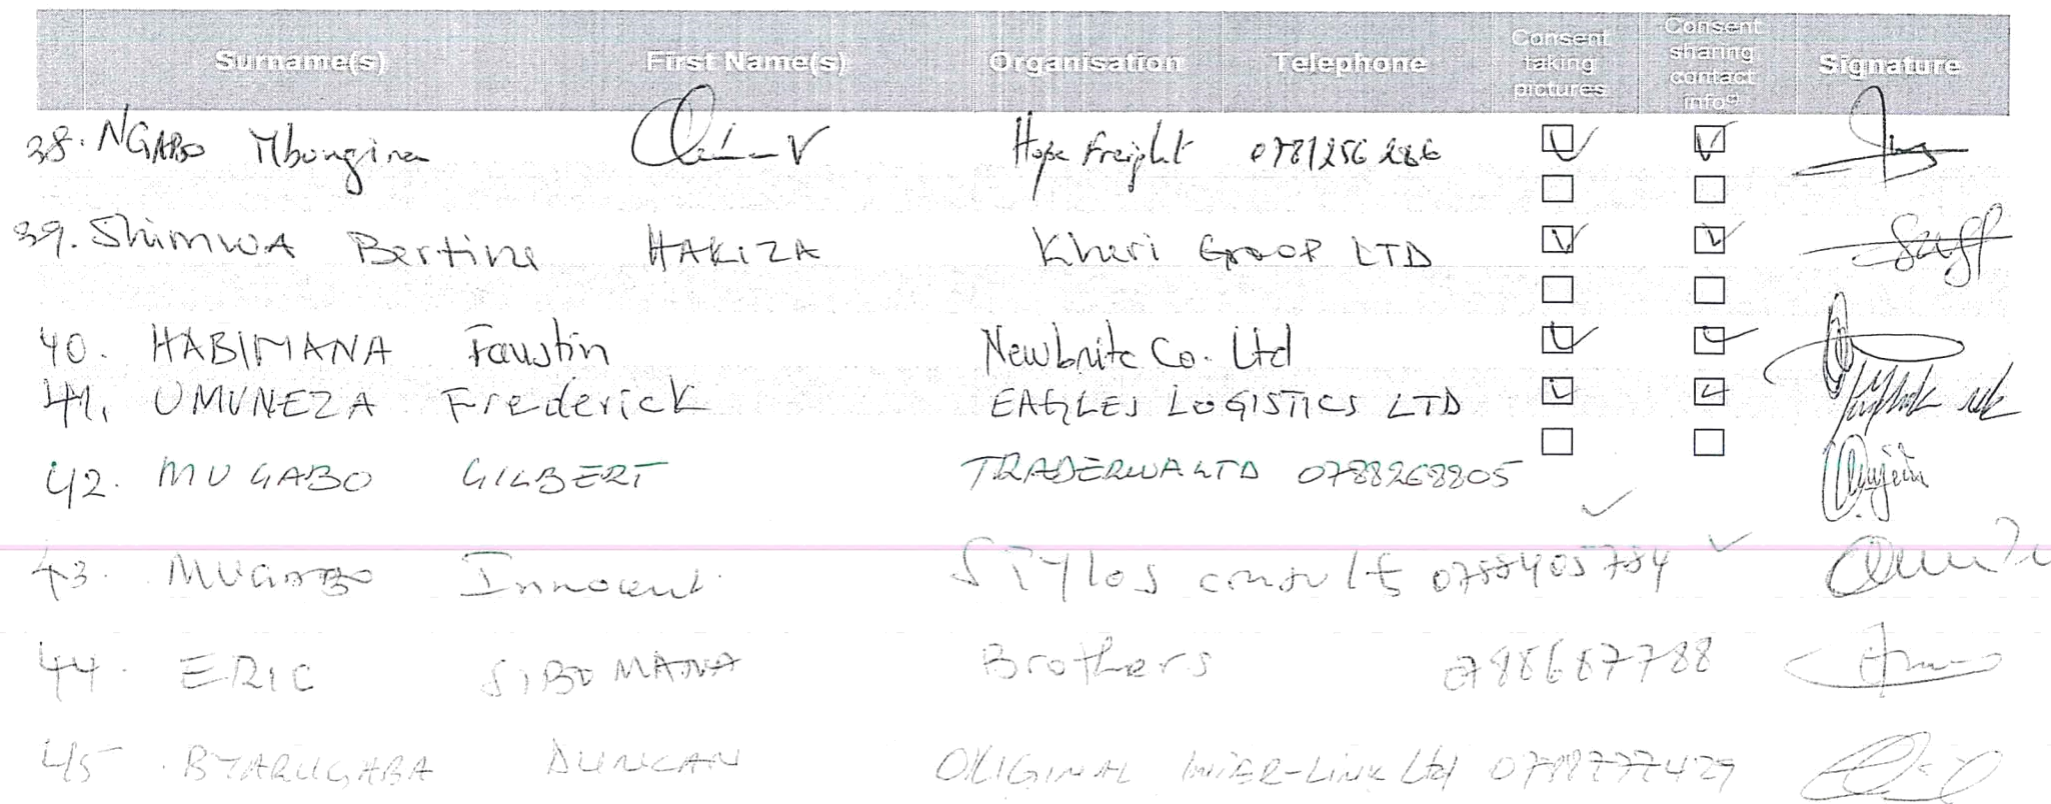 Surname(s) First Name(s) Organisation Telephone Consent taking pictures Consent sharing contact info⁹ Signature
38. NGABO Mbongira Hope Freight
39. ShimWA Bertine HAKIZA Kheri Group LTD
40. HABIMANA Faustin Newbrite Co. Ltd
41. UMUNEZA Frederick EAGLES LOGISTICS LTD
42. MUGABO GILBERT TRADERWA LTD 0788268805
43. MUGABO Innocent Stylos consult
44. ERIC SIBOMANA Brothers
45 BYARUGABA DUNCAN ORIGINAL INTER-LINK Ltd